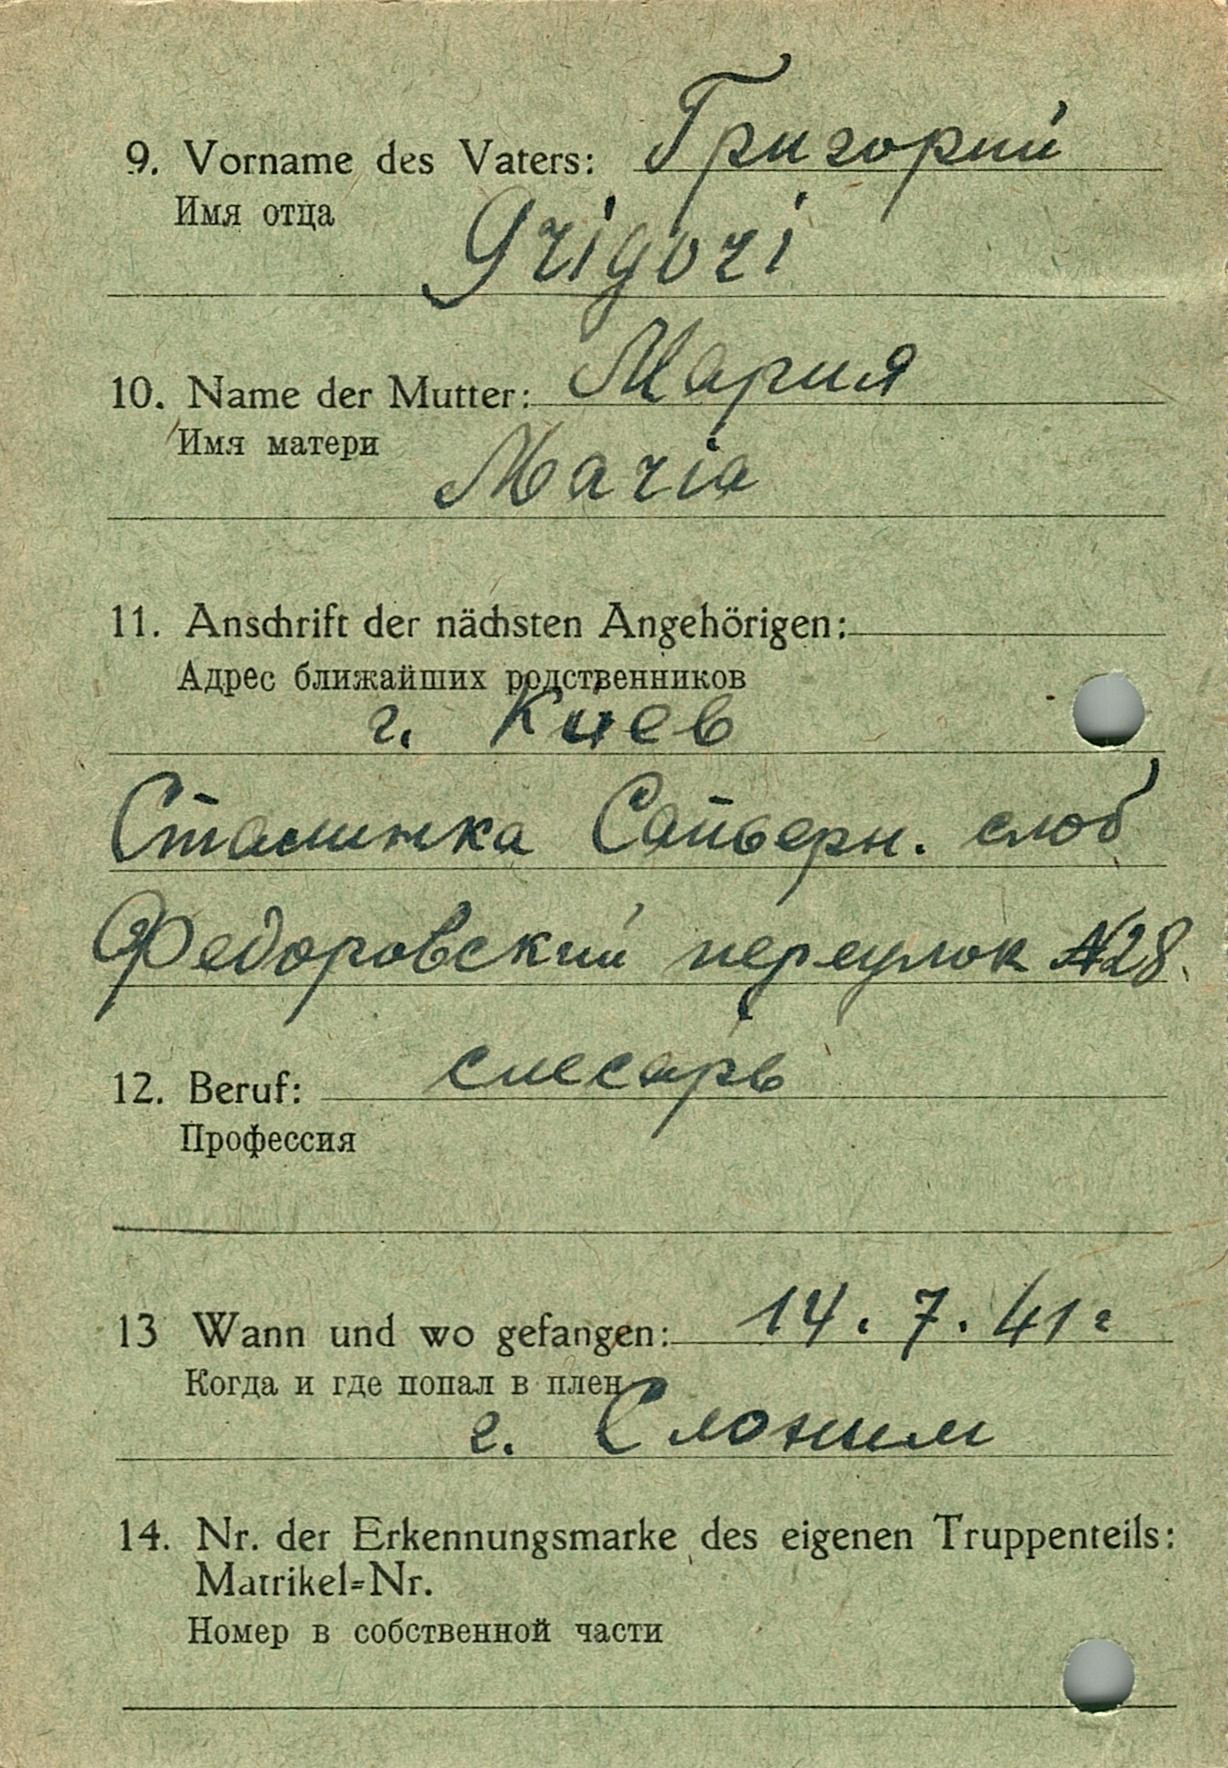 9. Vorname des Vaters: Григорий
Имя отца
Grigori
10. Name der Mutter: Мария
Имя матери
Maria
11. Anschrift der nächsten Angehörigen:
Адрес ближайших родственников
г. Киев
Сталинка Сапьерн. слоб
Федоровский переулок №28.
12. Beruf: слесарь
Профессия
13 Wann und wo gefangen: 14. 7. 41 г
Когда и где попал в плен
г. Слоним
14. Nr. der Erkennungsmarke des eigenen Truppenteils:
Matrikel-Nr.
Номер в собственной части